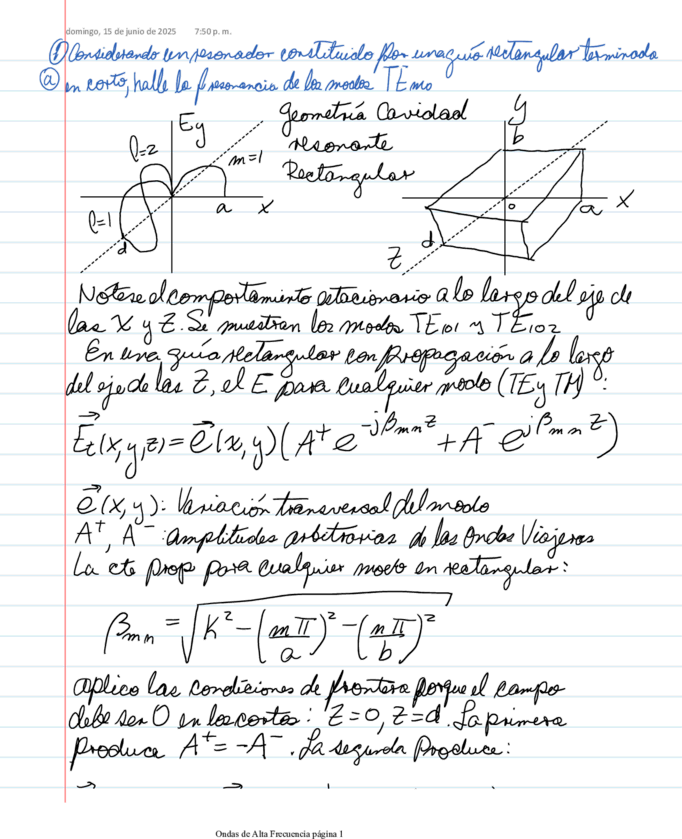 domingo, 15 de junio de 2025 7:50 p. m.
① Considerando un resonador constituido por una guía rectangular terminada
ⓐ en corto, halle la f resonancia de los modos TEmo
Ey
l=2
m=1
l=1
a
x
d
Geometría Cavidad
resonante
Rectangular
y
b
o
a
X
d
Z
Notese el comportamiento estacionario a lo largo del eje de
las X y Z. Se muestran los modos TE₁₀₁ y TE₁₀₂
En una guía rectangular con propagación a lo largo
del eje de las Z, el E para cualquier modo (TE y TM) :
E⃗t(x,y,z) = e⃗(x,y)(A⁺ e^{-jβmn z} + A⁻ e^{jβmn z})
e⃗(x,y): Variación transversal del modo
A⁺, A⁻ : amplitudes arbitrarias de las Ondas Viajeras
La cte prop para cualquier modo en rectangular:
βmn = √(K² - (mπ/a)² - (nπ/b)²)
aplico las condiciones de frontera porque el campo
debe ser 0 en los cortos: Z=0, Z=d. La primera
produce A⁺= -A⁻. La segunda Produce:
Ondas de Alta Frecuencia página 1